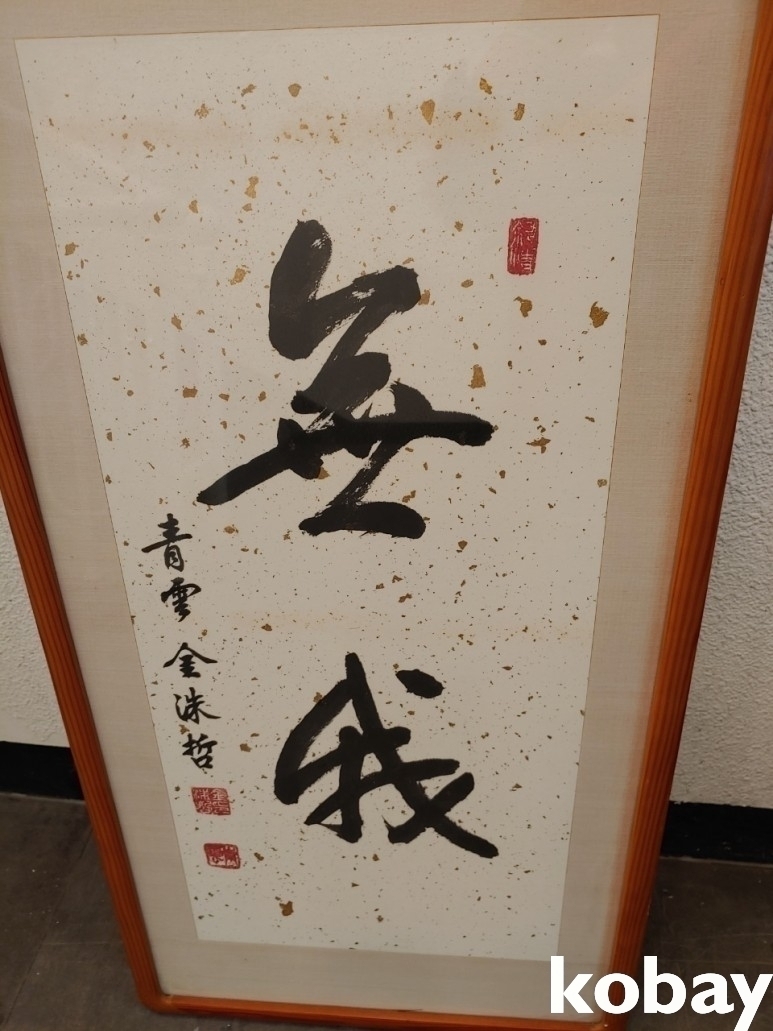 無我
青雲 金洙哲
kobay